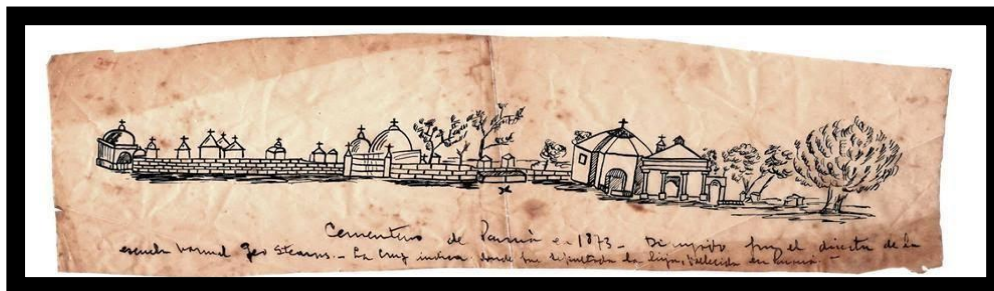 Cementerio de Paraná en 1873 - por el director de la
escuela normal Geo Stearns. - La cruz indica donde fue sepultada la fallecida en Paraná. -